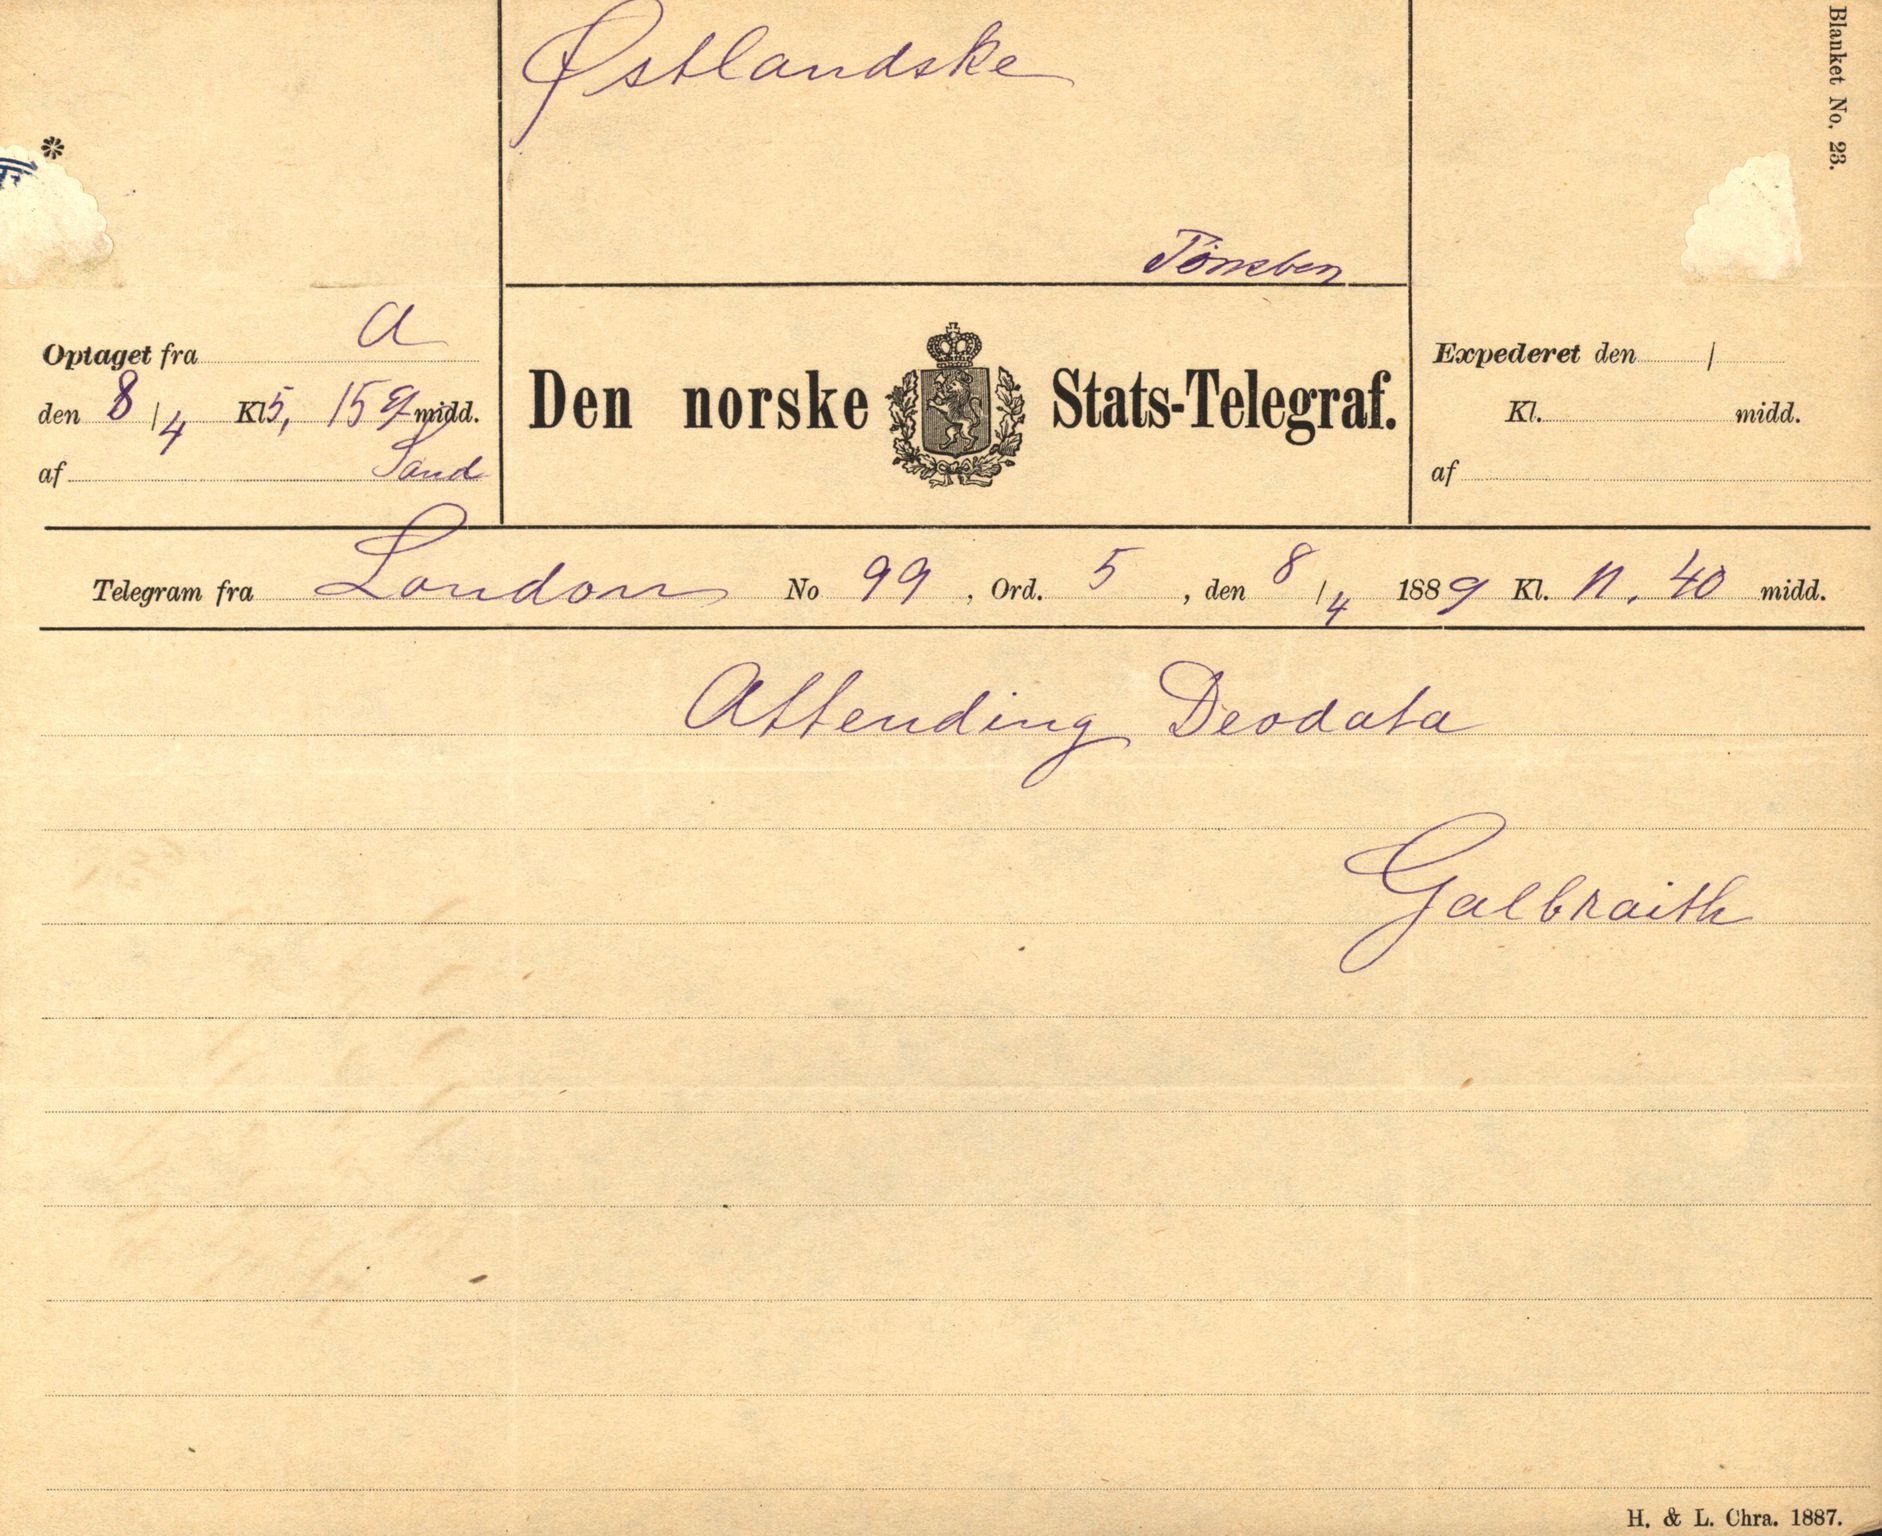 Blanket No. 23.
Østlandske
Tönsberg
Optaget fra A
den 8/4 Kl 5, 15 E midd.
af Sand
Den norske Stats-Telegraf.
Expederet den /
Kl. midd.
af
Telegram fra London No 99, Ord. 5, den 8/4 1889 Kl. n. 40 midd.
Attending Deodata
Galbraith
H. & L. Chra. 1887.